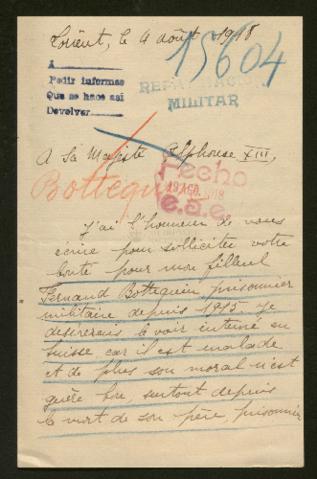 Lorient, le 4 août 1918
15604
A
Pedir informes
Que se hace así
Devolver
REPATRIACION
MILITAR
A Sa Majesté Alphonse XIII,
Bottequin
Fecho
19 AGO. 1918
e.a.e.
J'ai l'honneur de vous
écrire pour solliciter votre
bonté pour mon filleul
Fernand Bottequin, prisonnier
militaire depuis 1915. Je
desirerais le voir interné en
Suisse car il est malade
et de plus son moral n'est
guère bon, surtout depuis
la mort de son père, prisonnier